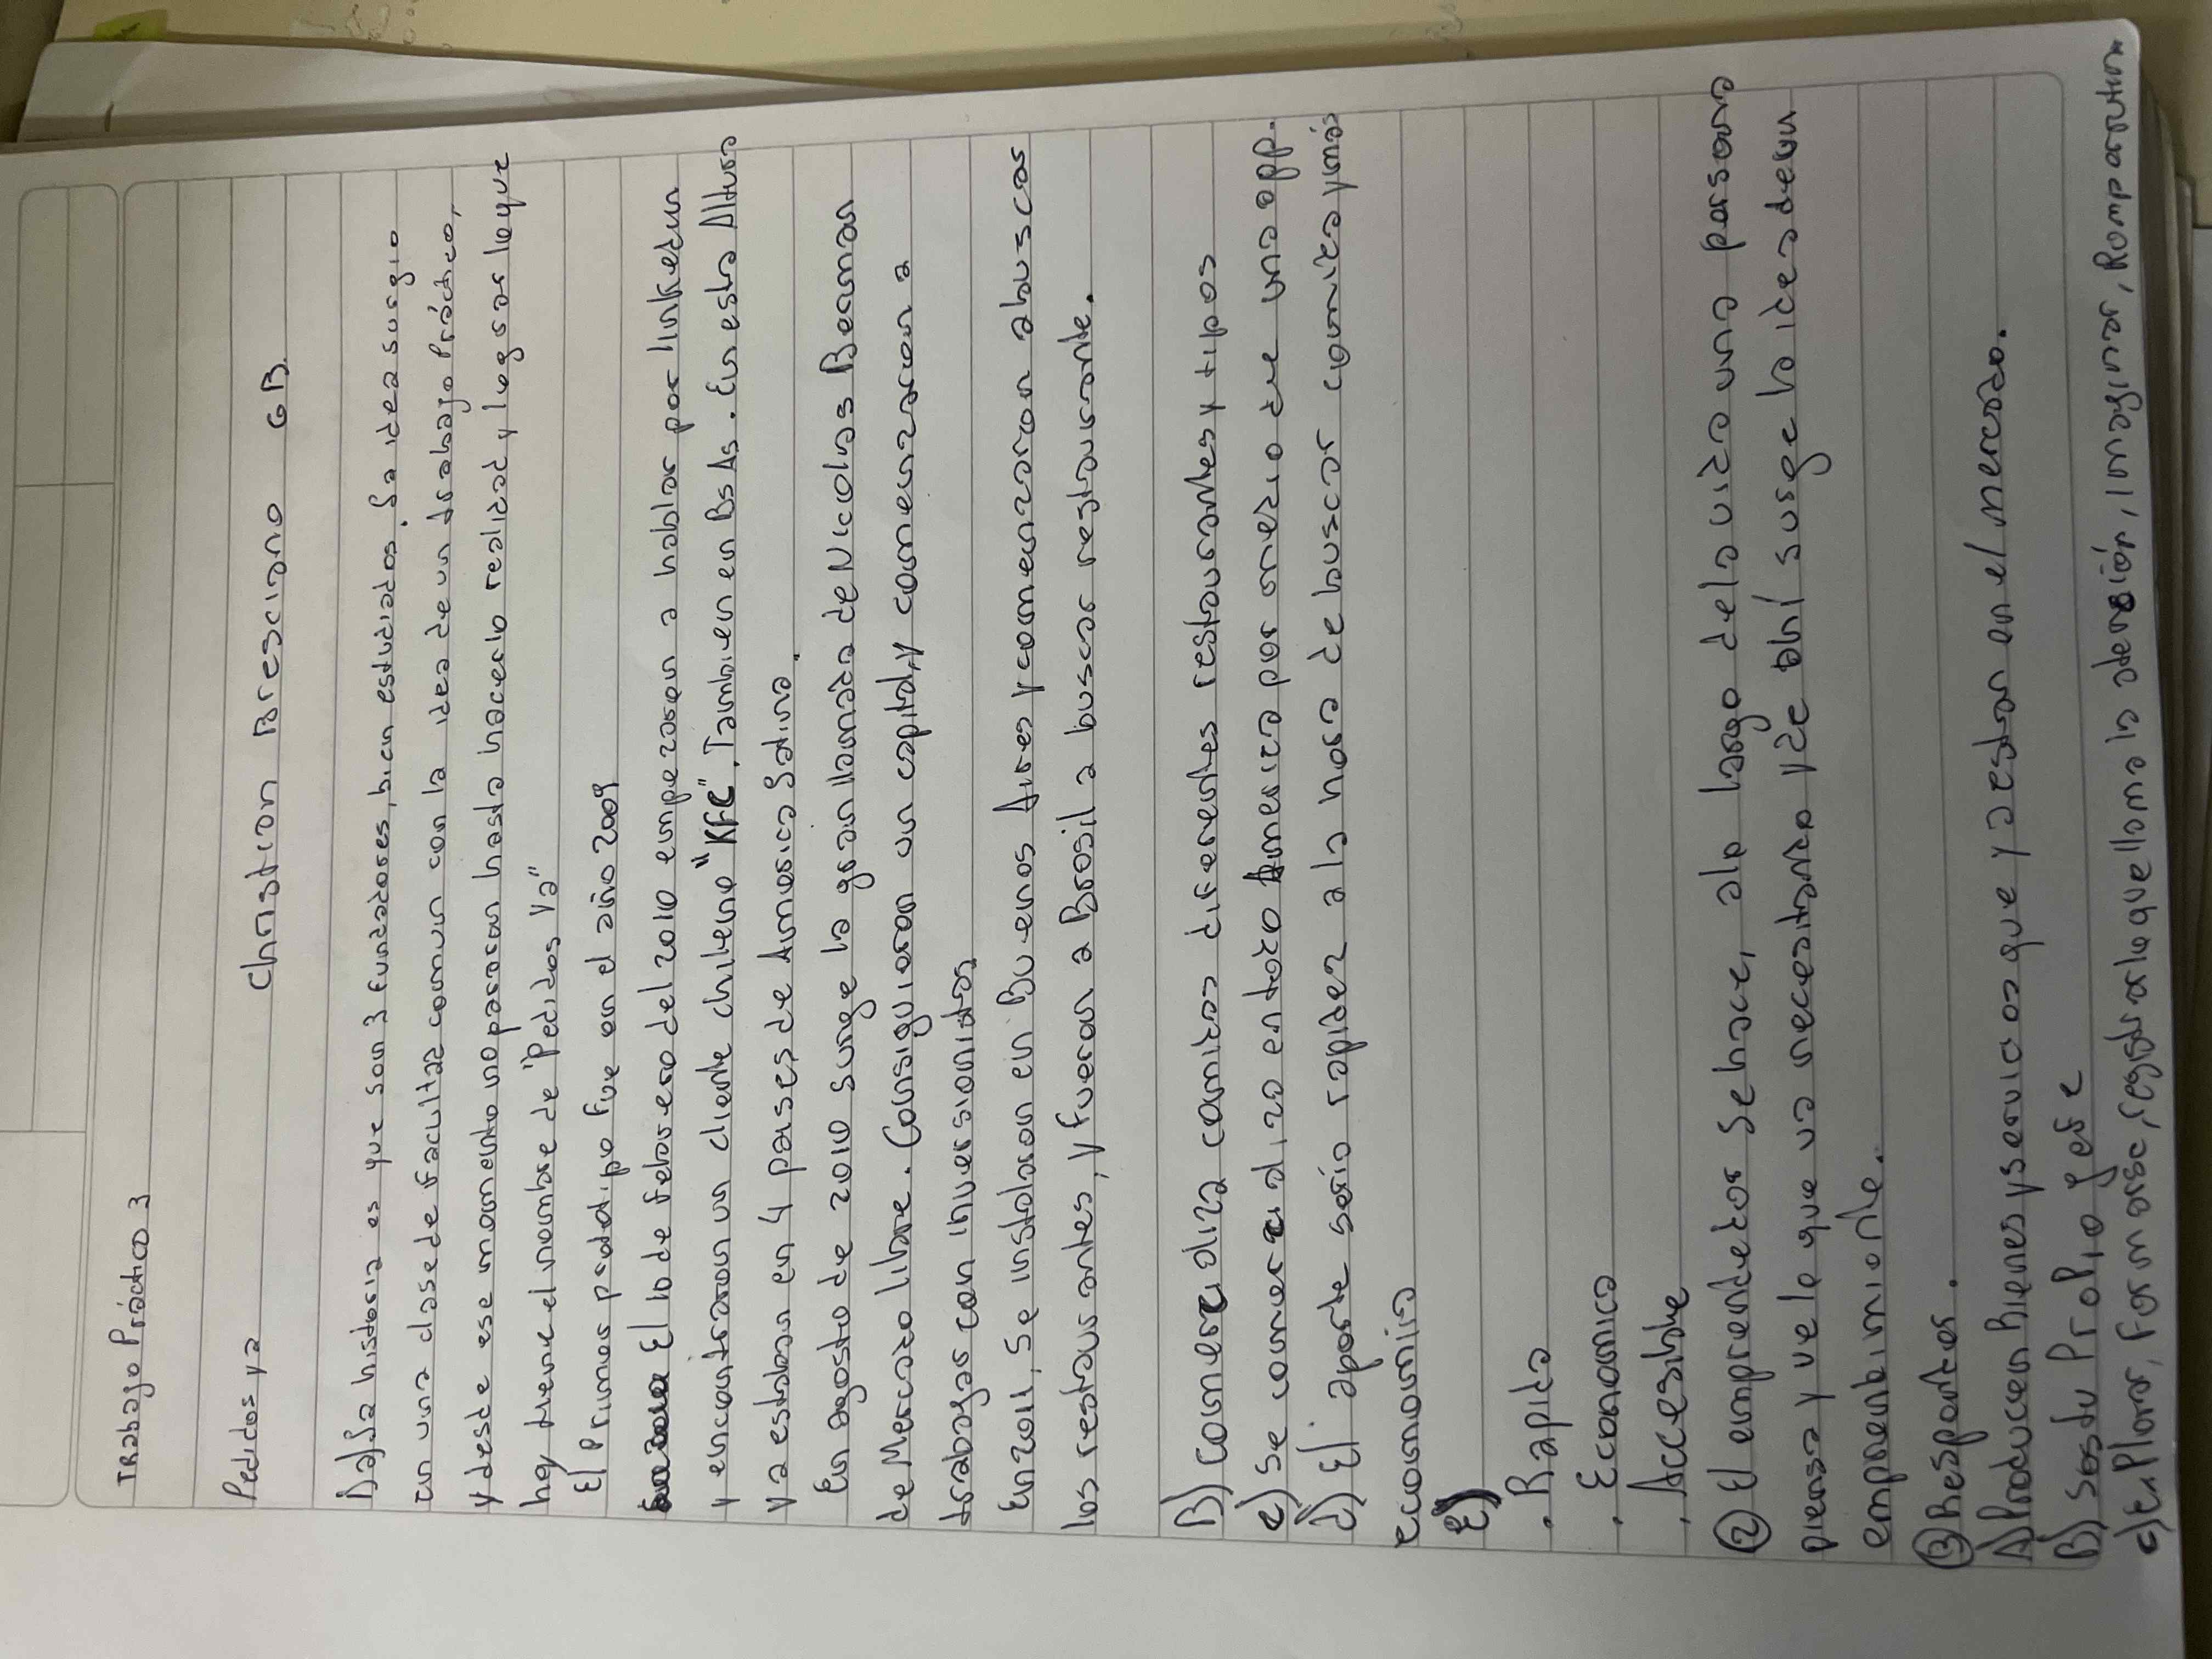 TRabajo Práctico 3
Pedidos ya Christian Bresciano 6B.
A) La historia es que son 3 fundadores, bien estudiados. La idea surgio
en una clase de Facultad comun con la idea de un trabajo práctico,
y desde ese momento no pararon hasta hacerlo realidad y logar lo que
hoy tiene el nombre de "Pedidos Ya"
El Primer prototipo fue en el año 2009
El 10 de Febrero del 2010 empezaron a hablar por linkedin
y encontraron un cliente chileno "KFC". Tambien en Bs As. En esta Altura
ya estaban en 4 paises de America Latina.
En agosto de 2010 surge la gran llamada de Nicolas Berman
de Mercado libre. Consiguieron un capital y comenzaron a
trabajar con inversionistas.
En 2011, se instalaron en Buenos Aires y comenzaron a buscar
los restaurantes, y fueron a Brasil a buscar restaurante.
B) Comercializa comidas diferentes restaurantes y tipos
c) Se comercializa en toda America por medio de una app.
D) El aporte sería rapidez a la hora de buscar comida y más
economico
E)
. Rapida
. Economica
. Accesible
② El emprendedor se hace, a lo largo de la vida una persona
piensa y ve lo que va necesitando y de ahí surge la idea de un
emprendimiento.
③ Respontes.
A) Producen Bienes y servicios que ya estan en el mercado.
B) Ser tu Propio Jefe
c) Explorar, Formarse, registrar lo que llama la atención, Imaginar, Romper rutina